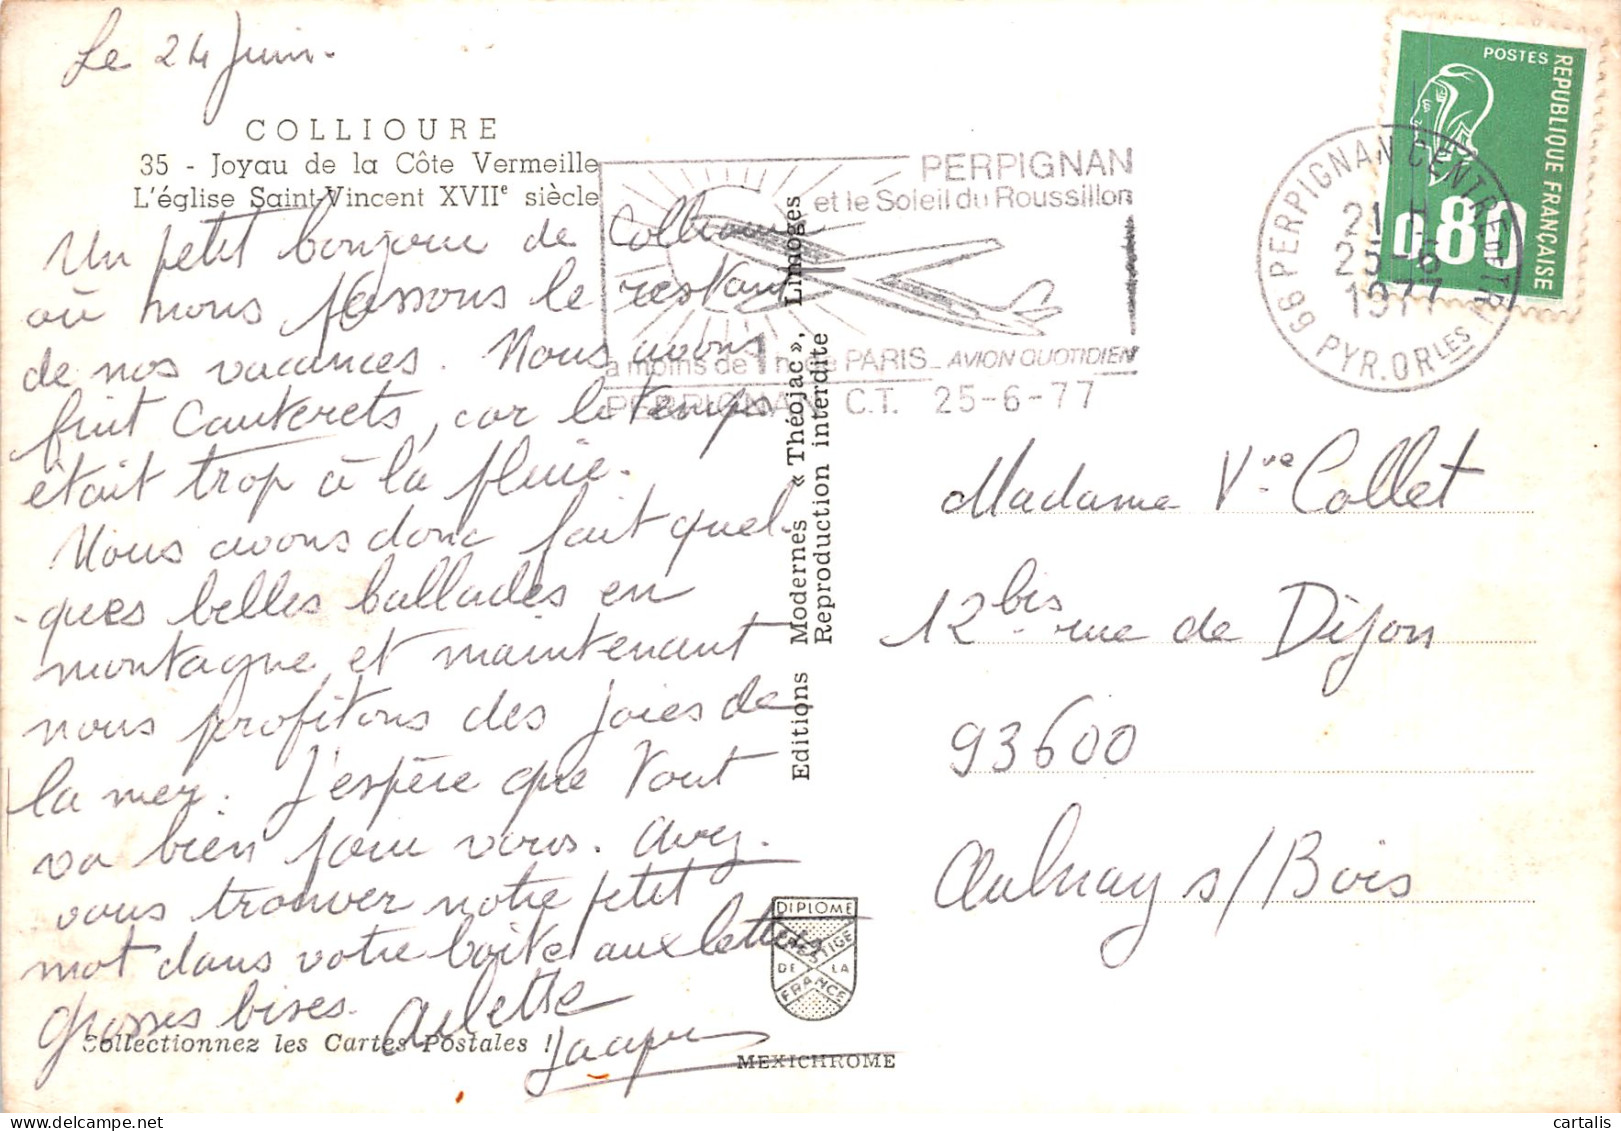 Le 24 Juin.
COLLIOURE
35 - Joyau de la Côte Vermeille
L'église Saint-Vincent XVIIe siècle
Un petit bonjour de Collioure
où nous passons le restant
de nos vacances. Nous avons
fuit Cauterets, car le temps
était trop à la pluie.
Nous avons donc fait quel-
-ques belles ballades en
montagne et maintenant
nous profitons des joies de
la mer. J'espère que tout
va bien pour vous. Avez-
vous trouver notre petit
mot dans votre boite aux lettres
grosses bises. Arlette
Jacques
Collectionnez les Cartes Postales !
PERPIGNAN
et le Soleil du Roussillon
a moins de 1 h de PARIS_ AVION QUOTIDIEN
PERPIGNAN C.T. 25-6-77
Editions Modernes « Théojac », Limoges
Reproduction interdite
DIPLOME
PRESTIGE
DE LA
FRANCE
MEXICHROME
POSTES
REPUBLIQUE FRANÇAISE
0.80
66 PERPIGNAN CENTRE DE TRI
21 H
25-6
1977
PYR. ORLES
Madame Vve Collet
12 bis rue de Dijon
93600
Aulnay s/Bois
www.delcampe.net
cartalis